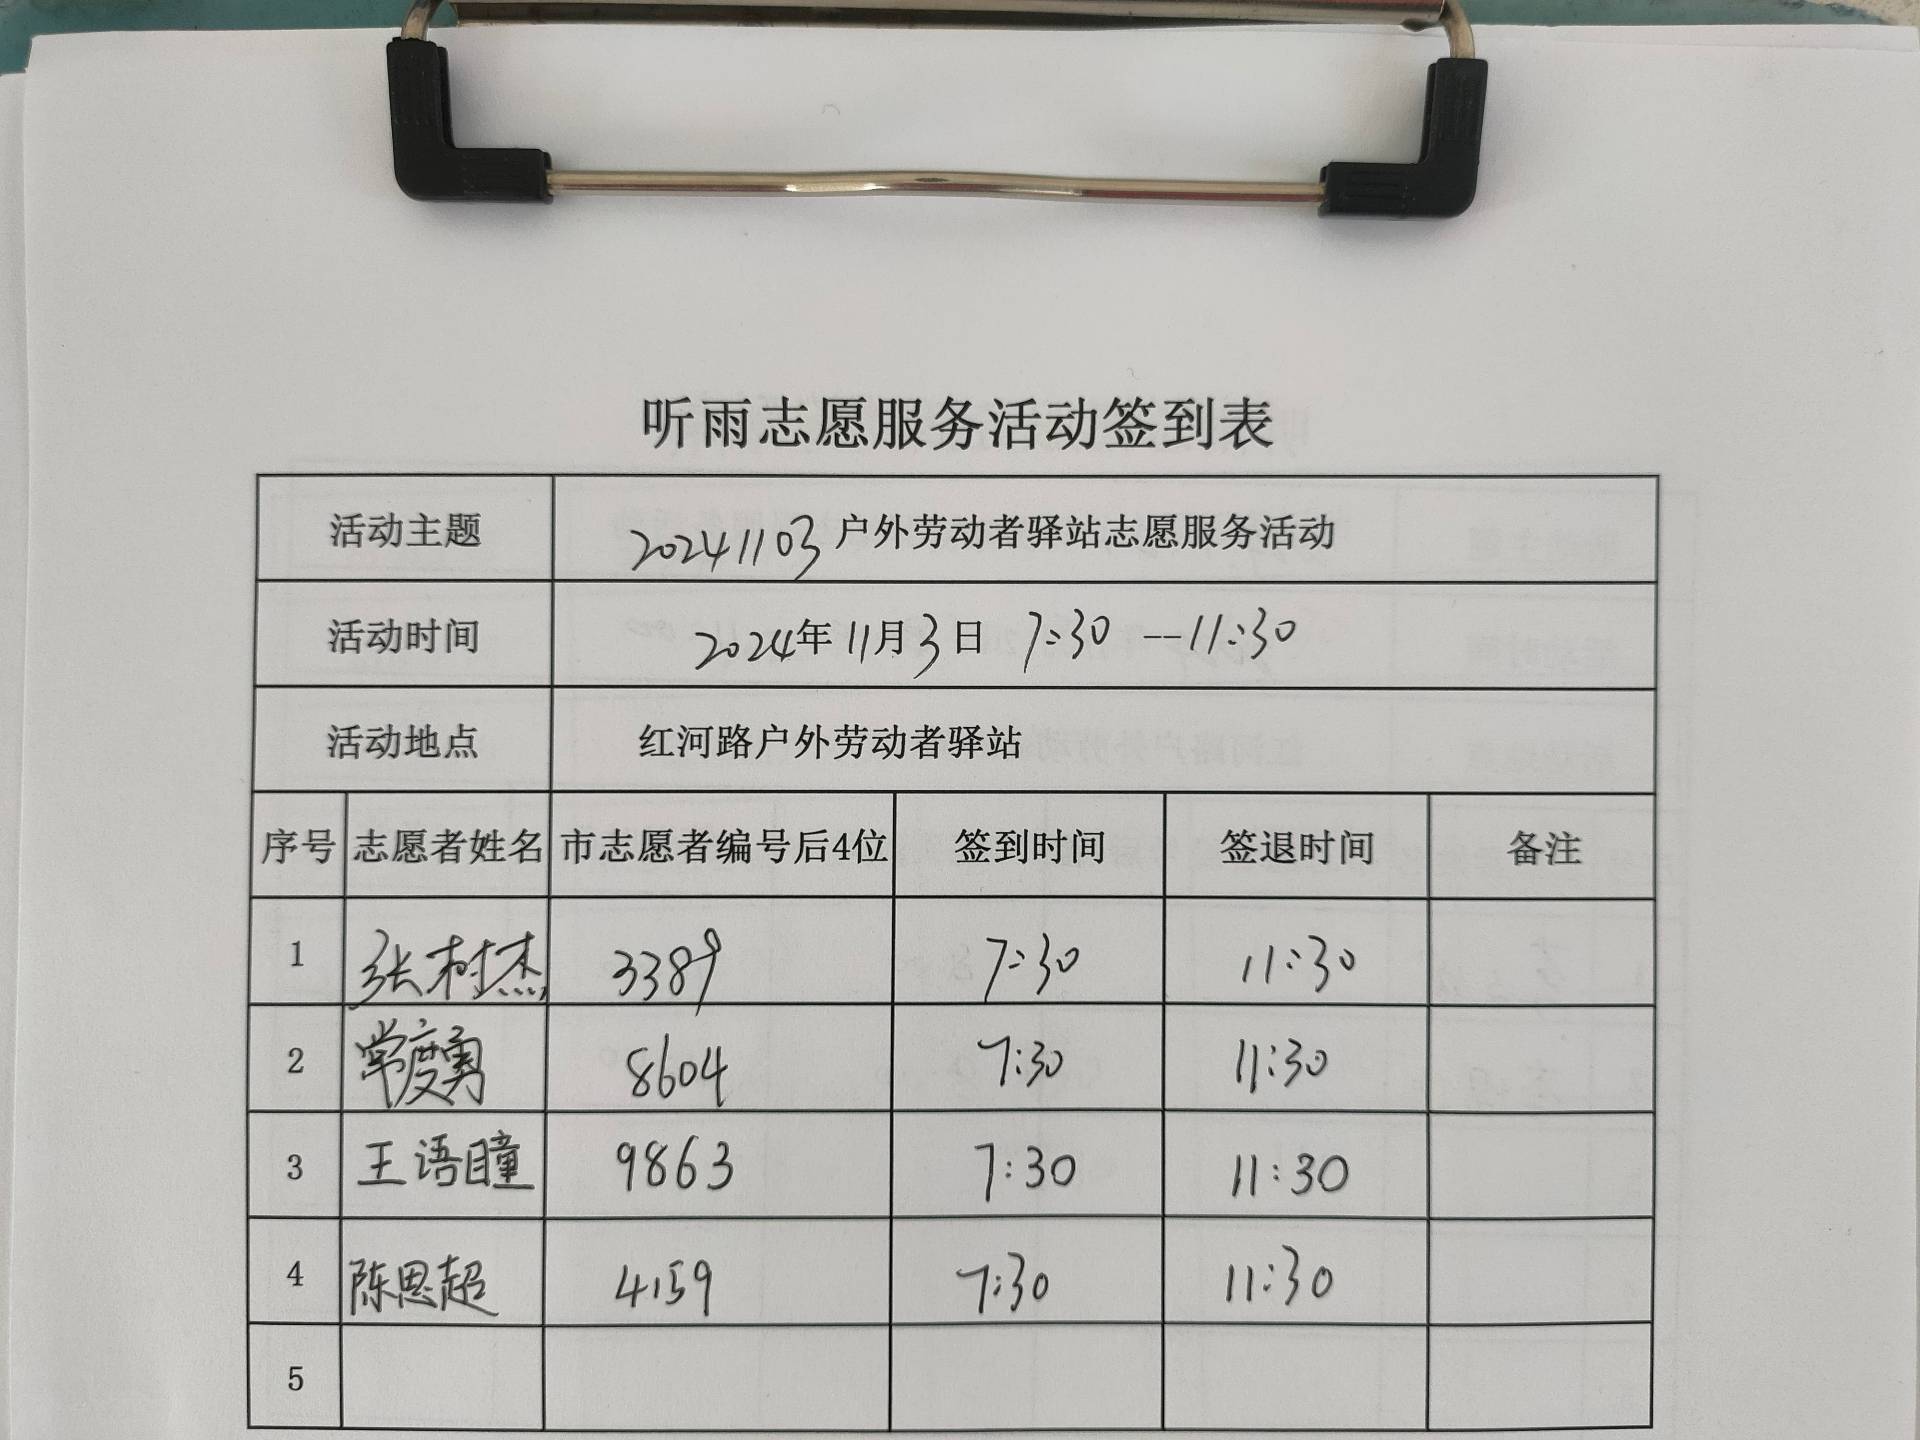 听雨志愿服务活动签到表
活动主题 20241103户外劳动者驿站志愿服务活动
活动时间 2024年11月3日 7:30--11:30
活动地点 红河路户外劳动者驿站
序号 志愿者姓名 市志愿者编号后4位 签到时间 签退时间 备注
1 张树杰 3389 7:30 11:30
2 常度勇 8604 7:30 11:30
3 王语瞳 9863 7:30 11:30
4 陈思超 4159 7:30 11:30
5